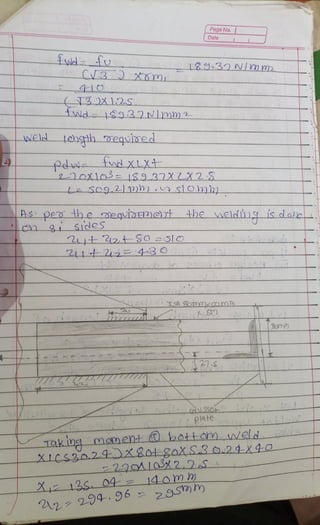 Page No.
Date
fwd = fu = 189.37 N/mm2
(√3) x γm1
= 410
(√3)x1.25
fwd = 189.37 N/mm2
weld length required
Pdw = fwd x L x t
270x10³ = 189.37 x L x 2.8
L = 509.21 mm. ≈ 510mm
As per the requirement the welding is done
on 3 sides
x1 + x2 + 80 = 510
x1 + x2 = 430
80mm
27.5
plate
Taking moment @ bottom weld
x1(530.24)x80+80x530.24x40
= 270x10³x27.5
x1 = 135.04 = 140mm
x2 = 294.96 = 295mm